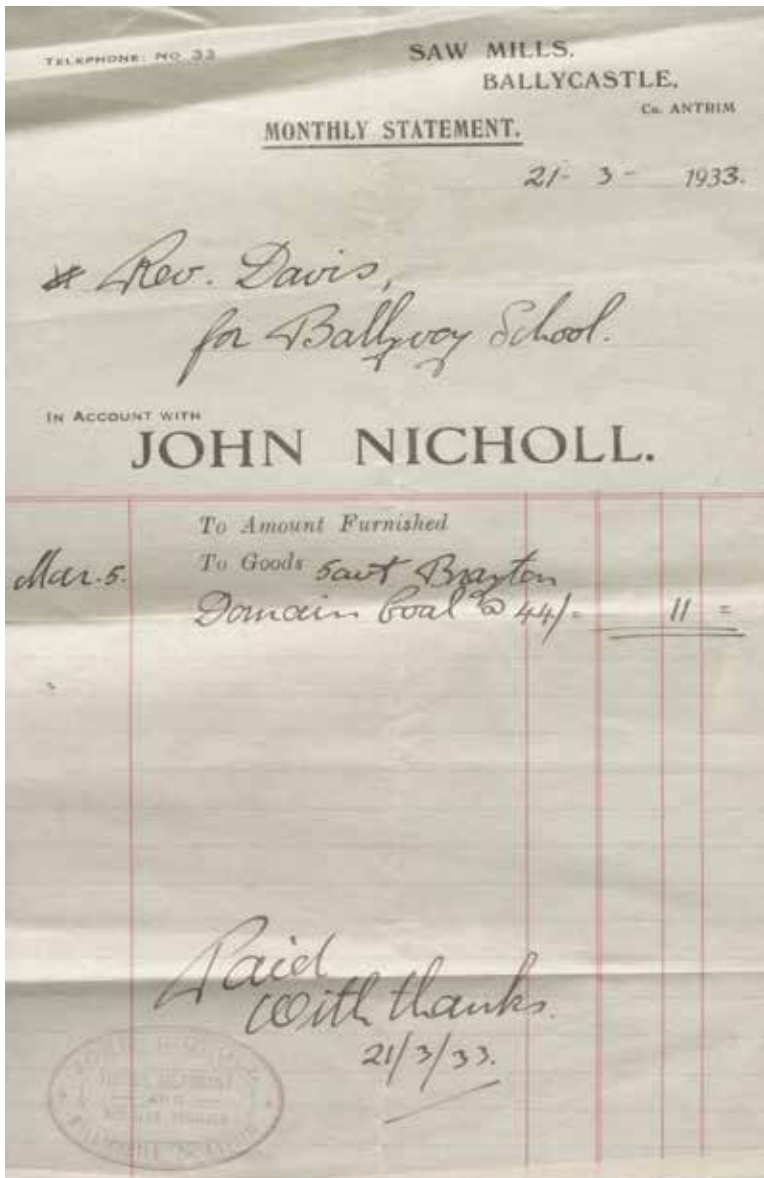 TELEPHONE: NO 33
SAW MILLS.
BALLYCASTLE,
Co. ANTRIM
MONTHLY STATEMENT.
21- 3 - 1933.
Rev. Davis,
for Ballyvoy School.
IN ACCOUNT WITH
JOHN NICHOLL.
To Amount Furnished
Mar. 5. To Goods 5cwt Brayton
Domain Coal @ 44/= 11 =
Paid
With thanks.
21/3/33.